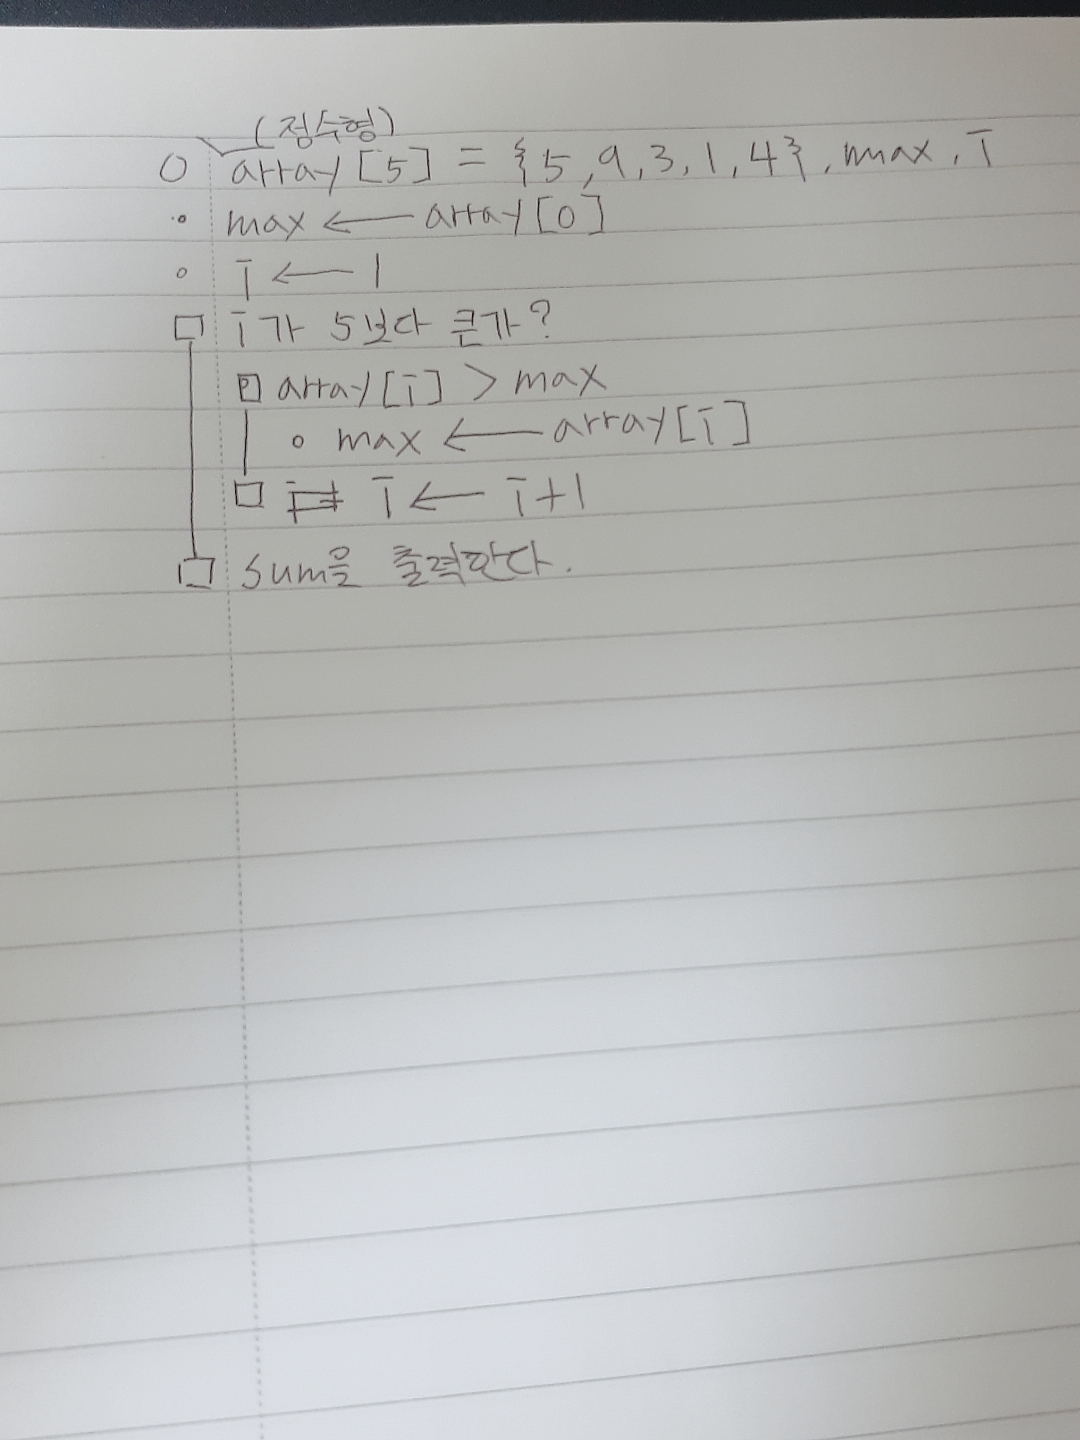 (정수형)
array[5] = {5, 9, 3, 1, 4}, max, i
max ← array[0]
i ← 1
i가 5보다 큰가?
array[i] > max
max ← array[i]
i ← i+1
sum을 출력한다.